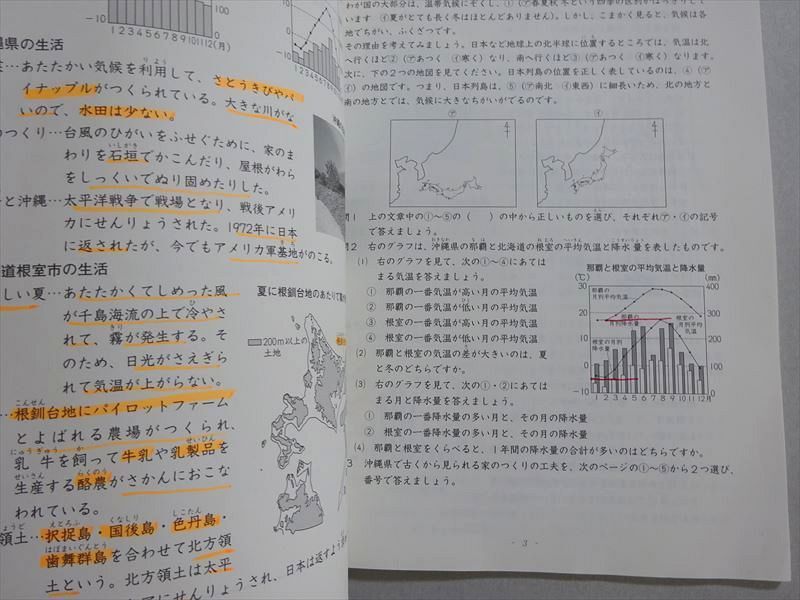 -10
1 2 3 4 5 6 7 8 9 10 11 12(月)
縄県の生活
…あたたかい気候を利用して、さとうきびやパ
イナップルがつくられている。大きな川がな
いので、水田は少ない。
のつくり…台風のひがいをふせぐために、家のま
わりを石垣でかこんだり、屋根がわら
をしっくいでぬり固めたりした。
と沖縄…太平洋戦争で戦場となり、戦後アメリ
カにせんりょうされた。1972年に日本
に返されたが、今でもアメリカ軍基地がのこる。
道根室市の生活
しい夏…あたたかくてしめった風
が千島海流の上で冷やさ
れて、霧が発生する。そ
のため、日光がさえぎら
れて気温が上がらない。
…根釧台地にパイロットファーム
とよばれる農場がつくられ、
乳牛を飼って牛乳や乳製品を
生産する酪農がさかんにおこな
われている。
領土…択捉島・国後島・色丹島・
歯舞群島を合わせて北方領
土という。北方領土は太平
にせんりょうされ、日本は返すよう
夏に根釧台地のあたりで霧が
200m以上の
土地
わが国の大部分は、温帯気候にぞくし、①(㋐春夏秋冬という四季の区別がはっきりして
います ㋑夏がとても長く冬はほとんどありません)。しかし、こまかく見ると、気候は各
地でちがい、ふくざつです。
その理由を考えてみましょう。日本など地球上の北半球に位置するところでは、気温は北
へ行くほど②(㋐あつく ㋑寒く)なり、南に行くほど③(㋐あつく ㋑寒く)なります。
次に、下の2つの地図を見てください。日本列島の位置を正しく表しているのは、④(㋐
㋑)の地図です。つまり、日本列島は、⑤(㋐南北 ㋑東西)に細長いため、北の地方と
南の地方とでは、気候に大きなちがいがでるのです。
㋐ ㋑
問1 上の文章中の①~⑤の( )の中から正しいものを選び、それぞれ㋐・㋑の記号
で答えましょう。
問2 右のグラフは、沖縄県の那覇と北海道の根室の平均気温と降水量を表したものです。
(1) 右のグラフを見て、次の①~④にあては
まる気温を答えましょう。
① 那覇の一番気温が高い月の平均気温
② 那覇の一番気温が低い月の平均気温
③ 根室の一番気温が高い月の平均気温
④ 根室の一番気温が低い月の平均気温
(2) 那覇と根室の気温の差が大きいのは、夏
と冬のどちらですか。
(3) 右のグラフを見て、次の①・②にあては
まる月と降水量を答えましょう。
① 那覇の一番降水量の多い月と、その月の降水量
② 根室の一番降水量の多い月と、その月の降水量
(4) 那覇と根室をくらべると、1年間の降水量の合計が多いのはどちらですか。
3 沖縄県で古くから見られる家のつくりの工夫を、次のページの①~⑤から2つ選び、
番号で答えましょう。
那覇と根室の平均気温と降水量
(℃) (mm)
30
20
10
0
-10
400
300
200
100
0
那覇の
月別平均気温
那覇の
月別降水量
根室の
月別平均気温
根室の月別
降水量
1 2 3 4 5 6 7 8 9 10 11 12月
- 3 -